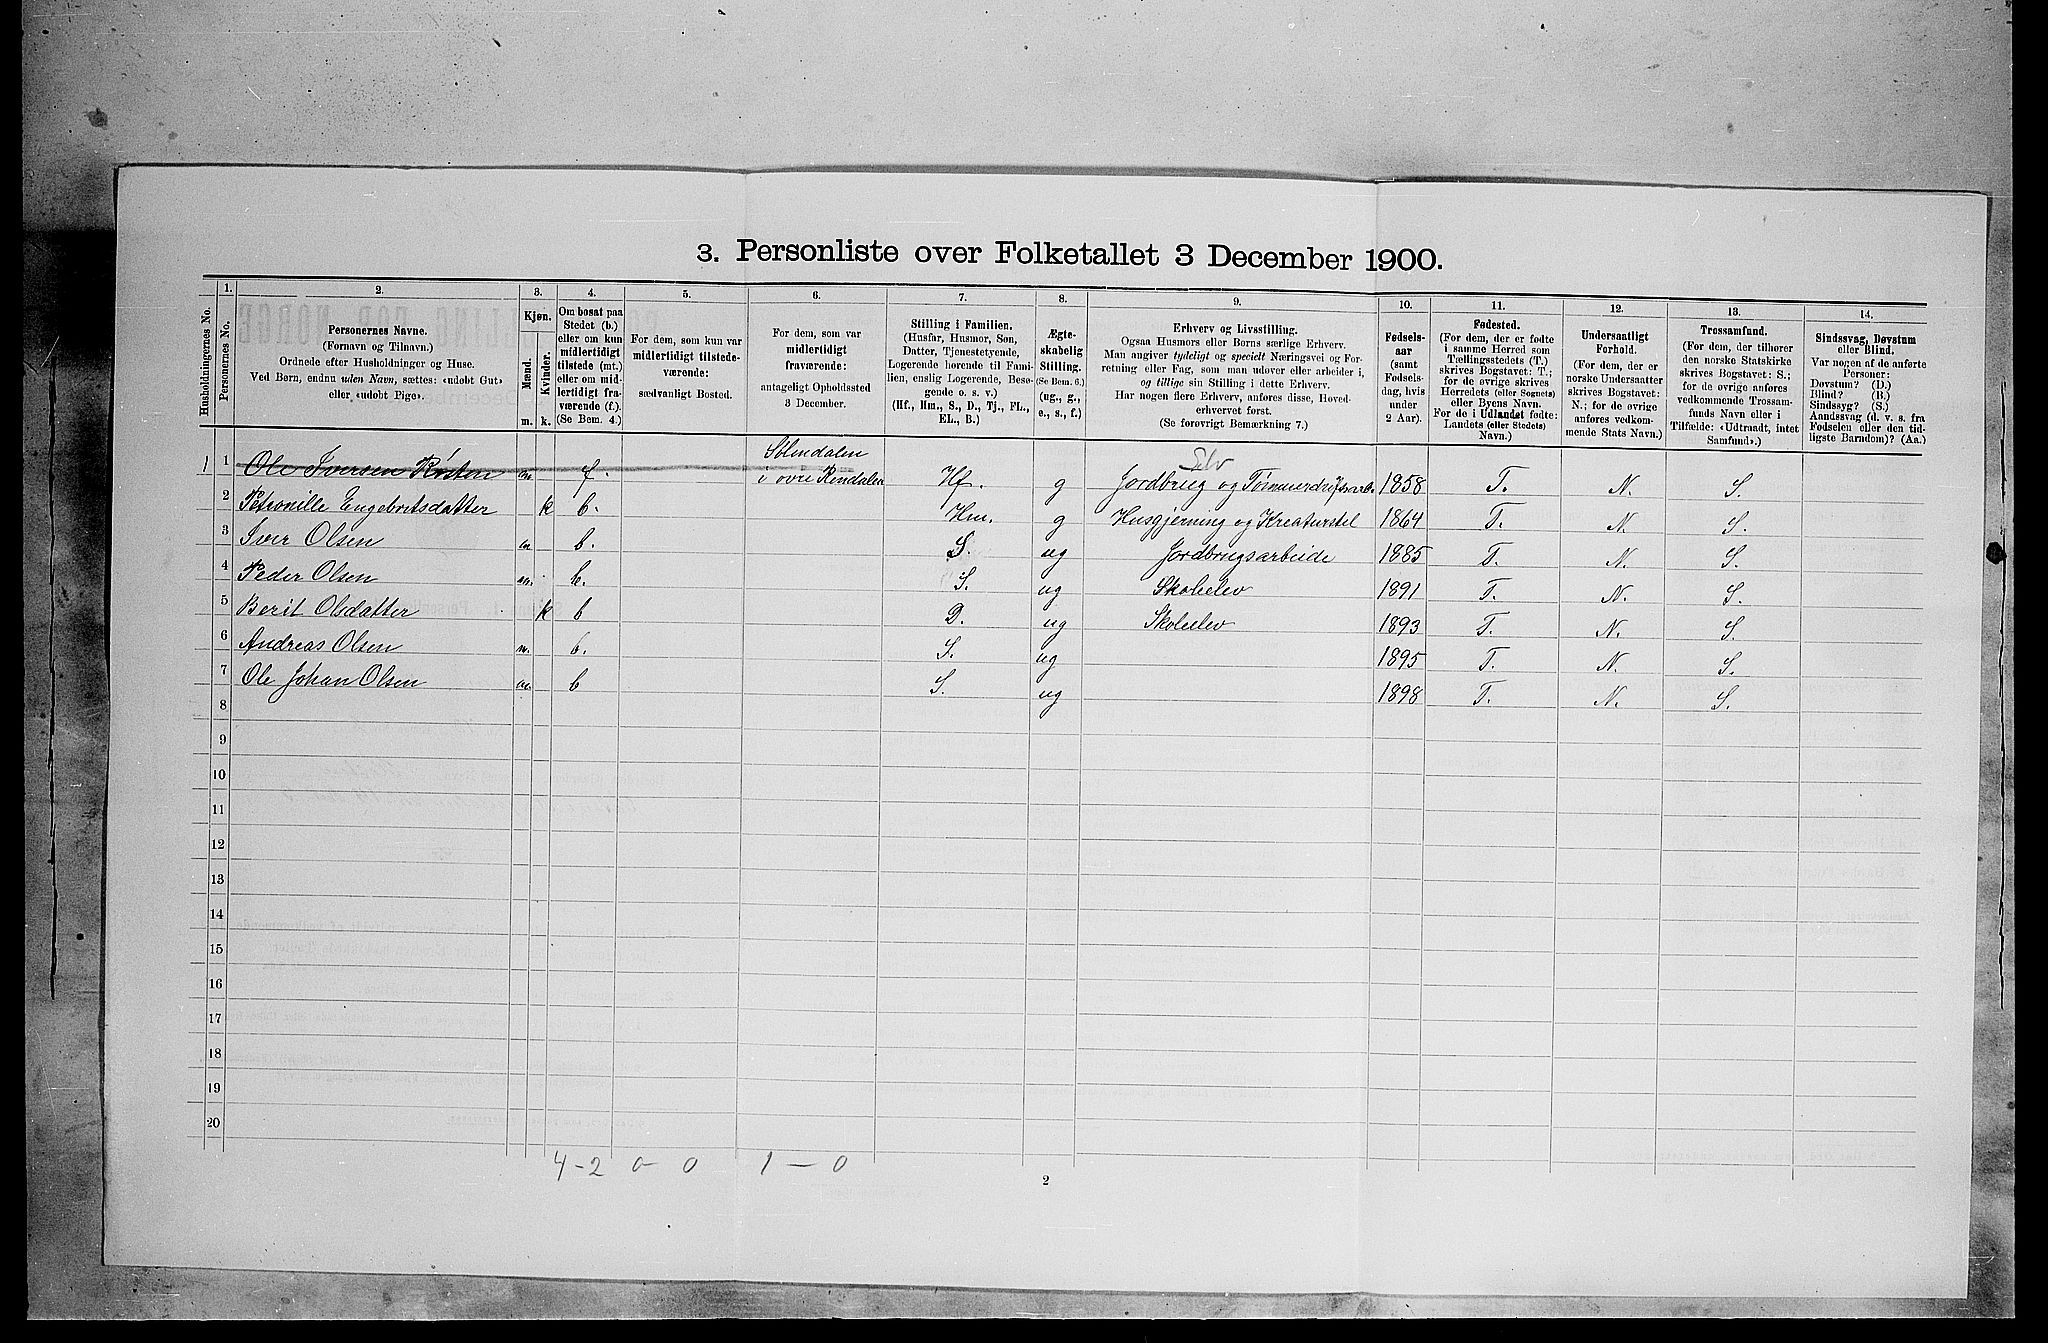 3. Personliste over Folketallet 3 December 1900.
Husholdningernes No.
1. Personernes No.
2. Personernes Navne. (Fornavn og Tilnavn.) Ordnede efter Husholdninger og Huse. Ved Børn, endnu uden Navn, sættes: «udøbt Gut» eller, «udøbt Pige».
3. Kjøn. Mænd. m. Kvinder. k.
4. Om bosat paa Stedet (b.) eller om kun midlertidigt tilstede (mt.) eller om midlertidigt fraværende (f.). (Se Bem. 4.)
5. For dem, som kun var midlertidigt tilstedeværende: sædvanligt Bosted.
6. For dem, som var midlertidigt fraværende: antageligt Opholdssted 3 December.
7. Stilling i Familien. (Husfar, Husmor, Søn, Datter, Tjenestetyende, Logerende hørende til Familien, enslig Logerende, Besøgende o. s. v.) (Hf., Hm., S., D., Tj., FL., EL., B.)
8. Ægteskabelig Stilling. (Se Bem. 6.) (ug., g., e., s., f.)
9. Erhverv og Livsstilling. Ogsaa Husmors eller Børns særlige Erhverv. Man angiver tydeligt og specielt Næringsvei og Forretning eller Fag, som man udøver eller arbeider i, og tillige sin Stilling i dette Erhverv. Har nogen flere Erhverv, anføres disse, Hovederhvervet først. (Se forøvrigt Bemærkning 7.)
10. Fødselsaar (samt Fødselsdag, hvis under 2 Aar).
11. Fødested. (For dem, der er fødte i samme Herred som Tællingsstedets (T.) skrives Bogstavet: T.; for de øvrige skrives Herredets (eller Sognets) eller Byens Navn. For de i Udlandet fødte: Landets (eller Stedets) Navn.)
12. Undersaatligt Forhold. (For dem, der er norske Undersaatter skrives Bogstavet: N.; for de øvrige anføres vedkommende Stats Navn.)
13. Trossamfund. (For dem, der tilhører den norske Statskirke skrives Bogstavet: S.; for de øvrige anføres vedkommende Trossamfunds Navn eller i Tilfælde: «Udtraadt, intet Samfund».)
14. Sindssvag, Døvstum eller Blind. Var nogen af de anførte Personer: Døvstum? (D.) Blind? (B.) Sindssyg? (S.) Aandssvag (d. v. s. fra Fødselen eller den tidligste Barndom)? (Aa.)
1 1 Ole Iversen Røsten m f. Sølendalen i øvre Rendalen Hf. g Selv Jordbrug og Tømmerdriftsarb. 1858 T. N. S.
2 Petronille Engebretsdatter k b. Hm. g Husgjerning og Kreaturstel 1864 T. N. S.
3 Iver Olsen m b. S. ug Jordbrugsarbeide 1885 T. N. S.
4 Peder Olsen m. b. S. ug Skoleelev 1891 T. N. S.
5 Berit Olsdatter k b D. ug Skoleelev 1893 T. N. S.
6 Andreas Olsen m. b. S. ug 1895 T. N. S.
7 Ole Johan Olsen m. b S. ug 1898 T. N. S.
8
9
10
11
12
13
14
15
16
17
18
19
20
4-2 0-0 1-0
2